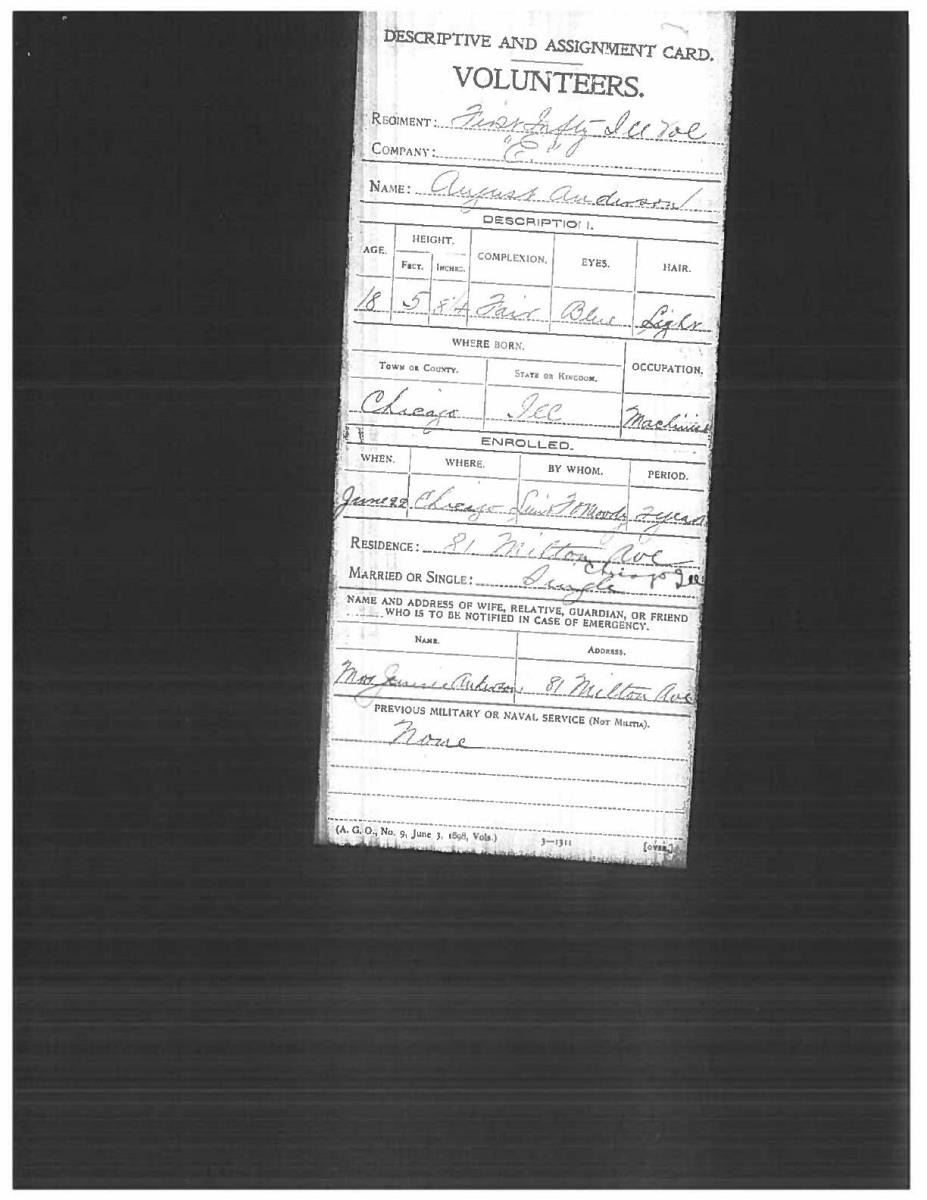 DESCRIPTIVE AND ASSIGNMENT CARD.
VOLUNTEERS.
REGIMENT: First Infty Ill Vol
COMPANY: "E"
NAME: August Anderson
DESCRIPTION.
AGE. HEIGHT. COMPLEXION. EYES. HAIR.
FEET. INCHES.
18 5 8 1/4 Fair Blue Light
WHERE BORN. OCCUPATION.
TOWN OR COUNTY. STATE OR KINGDOM.
Chicago Ill Machinist
ENROLLED.
WHEN. WHERE. BY WHOM. PERIOD.
June 22 Chicago Moody 2 years
RESIDENCE: 81 Milton Ave
Chicago Ill
MARRIED OR SINGLE: Single
NAME AND ADDRESS OF WIFE, RELATIVE, GUARDIAN, OR FRIEND
WHO IS TO BE NOTIFIED IN CASE OF EMERGENCY.
NAME. ADDRESS.
Mrs Anderson, 81 Milton Ave
PREVIOUS MILITARY OR NAVAL SERVICE (NOT MILITIA).
None
(A. G. O., No. 9, June 3, 1898, Vols.) 3—1311 [OVER.]